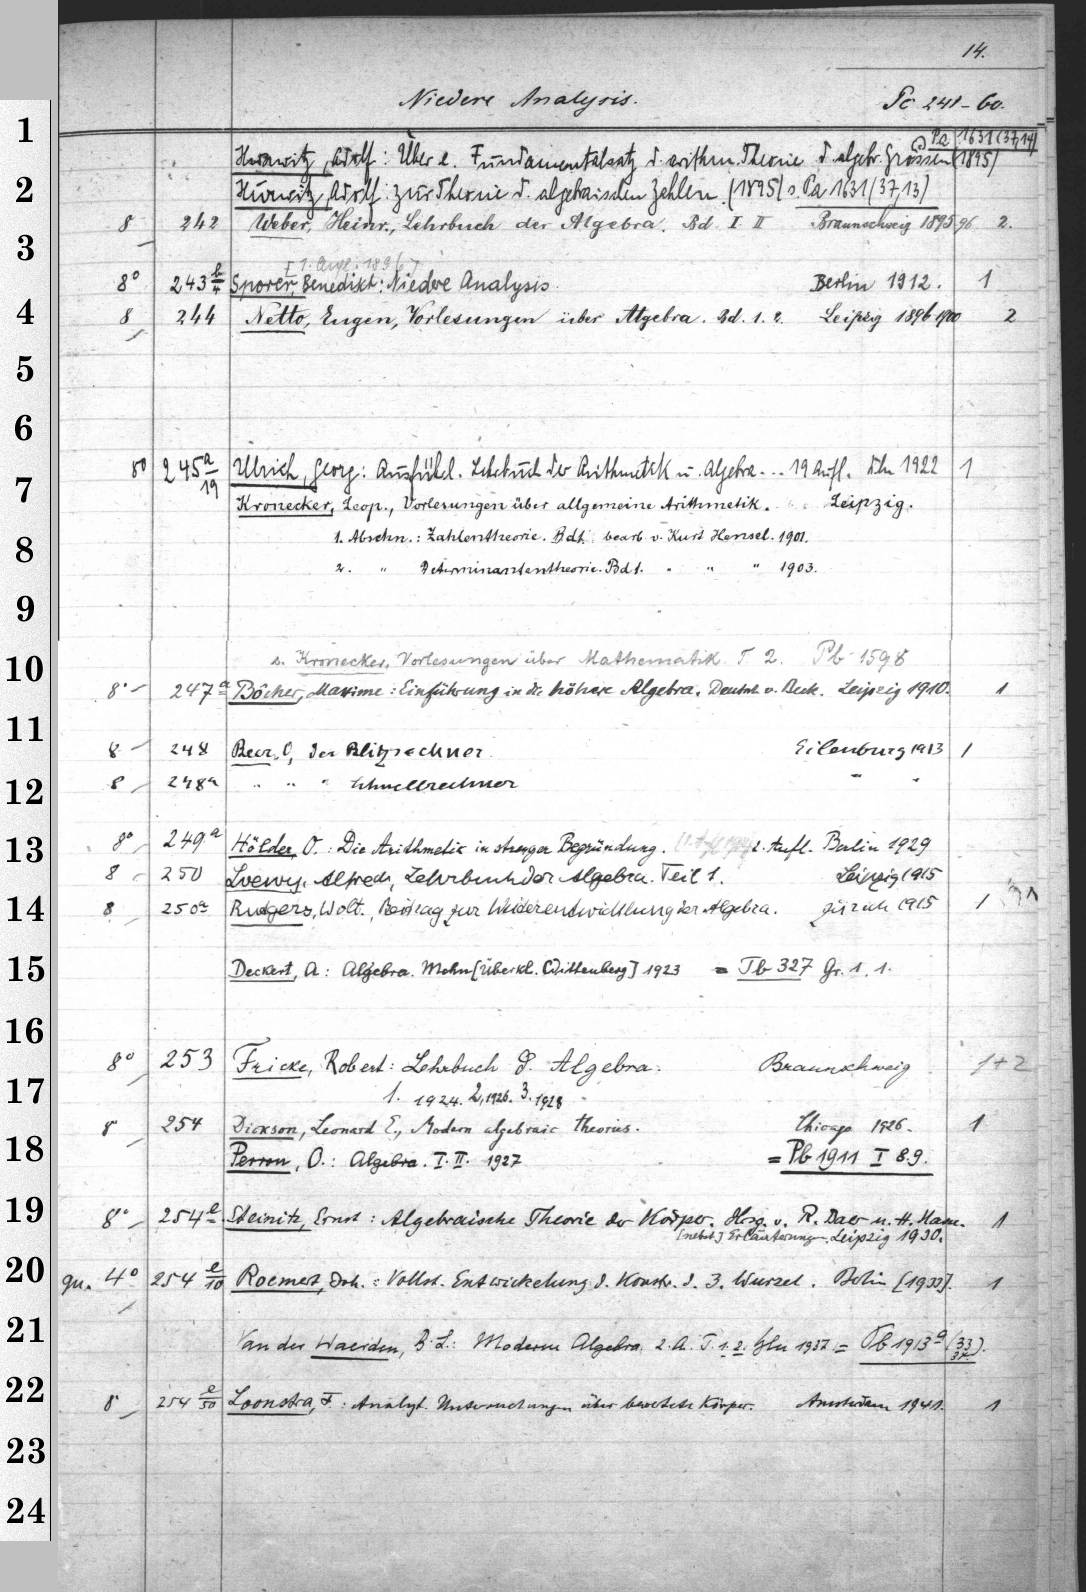 14.
Niedere Analysis. Pc 241-60.
1 Pa 1631(37,14)
Hurwitz, Adolf: Über e. Fundamentalsatz d. arithm. Theorie d. algebr. Grössen (1895)
2 Hurwitz, Adolf: zur Theorie d. algebraischen Zahlen. (1895) s. Pa 1631/(37,13)
8 242 Weber, Heinr., Lehrbuch der Algebra. Bd I. II Braunschweig 1895 96 2.
3
[1. Aufl. 1896]
8° 243 Sporer, Benedikt: Niedere Analysis. Berlin 1912. 1
4 8 244 Netto, Eugen, Vorlesungen über Algebra. Bd. 1. 2. Leipzig 1896 1900 2
5
6
8° 245 a/19 Ulrich, Georg: Ausführl. Lehrbuch der Arithmetik u. Algebra... 19 Aufl. 1922 1
7 Kronecker, Leop., Vorlesungen über allgemeine Arithmetik. Leipzig.
8 1. Abschn.: Zahlentheorie. Bd 1. bearb. v. Kurt Hensel. 1901.
2. " Determinantentheorie. Bd 1. " " " 1903.
9
10 s. Kronecker, Vorlesungen über Mathematik T 2. Pb 1598
8° 247a Bôcher, Maxime: Einführung in die höhere Algebra. Deutsch v. Beck. Leipzig 1910. 1
11 8 248 Beer, O, Der Blitzrechner. Eilenburg 1913 1
12 8 248a " " " Schnellrechner " "
13 8° 249a Hölder, O.: Die Arithmetik in strenger Begründung. 2. Aufl. Berlin 1929
8 250 Loewy, Alfred, Lehrbuch der Algebra. Teil 1. Leipzig 1915
14 8 250a Rutgers, Wolt., Beitrag zur Weiterentwicklung der Algebra. Zürich 1915 1
15 Deckert, A: Algebra. Mchn [Überkl. Wittenberg] 1923 = Tb 327 Gr. 1, 1.
16
8° 253 Fricke, Robert: Lehrbuch d. Algebra. Braunschweig 1+2
17 1. 1924. 2, 1926. 3. 1928
8 254 Dickson, Leonard E., Modern algebraic theories. Chicago 1926. 1
18 Perron, O.: Algebra. I. II. 1927 = Pb 1911 I 8.9.
19 8° 254e Steinitz, Ernst: Algebraische Theorie der Körper. Hrsg. v. R. Baer u. H. Hasse. 1
[nebst] Erläuterungen Leipzig 1930.
20 qu. 4° 254 e/10 Roemert, Joh.: Vollst. Entwickelung d. Konstr. d. 3. Wurzel. Berlin [1933]. 1
21 Van der Waerden, B. L.: Moderne Algebra. 2. A. T. 1. 2. Bln 1937 = Pb 1913a (33/34).
22 8 254 e/50 Loonstra, F.: Analyt. Untersuchungen über bewertete Körper. Amsterdam 1941. 1
23
24